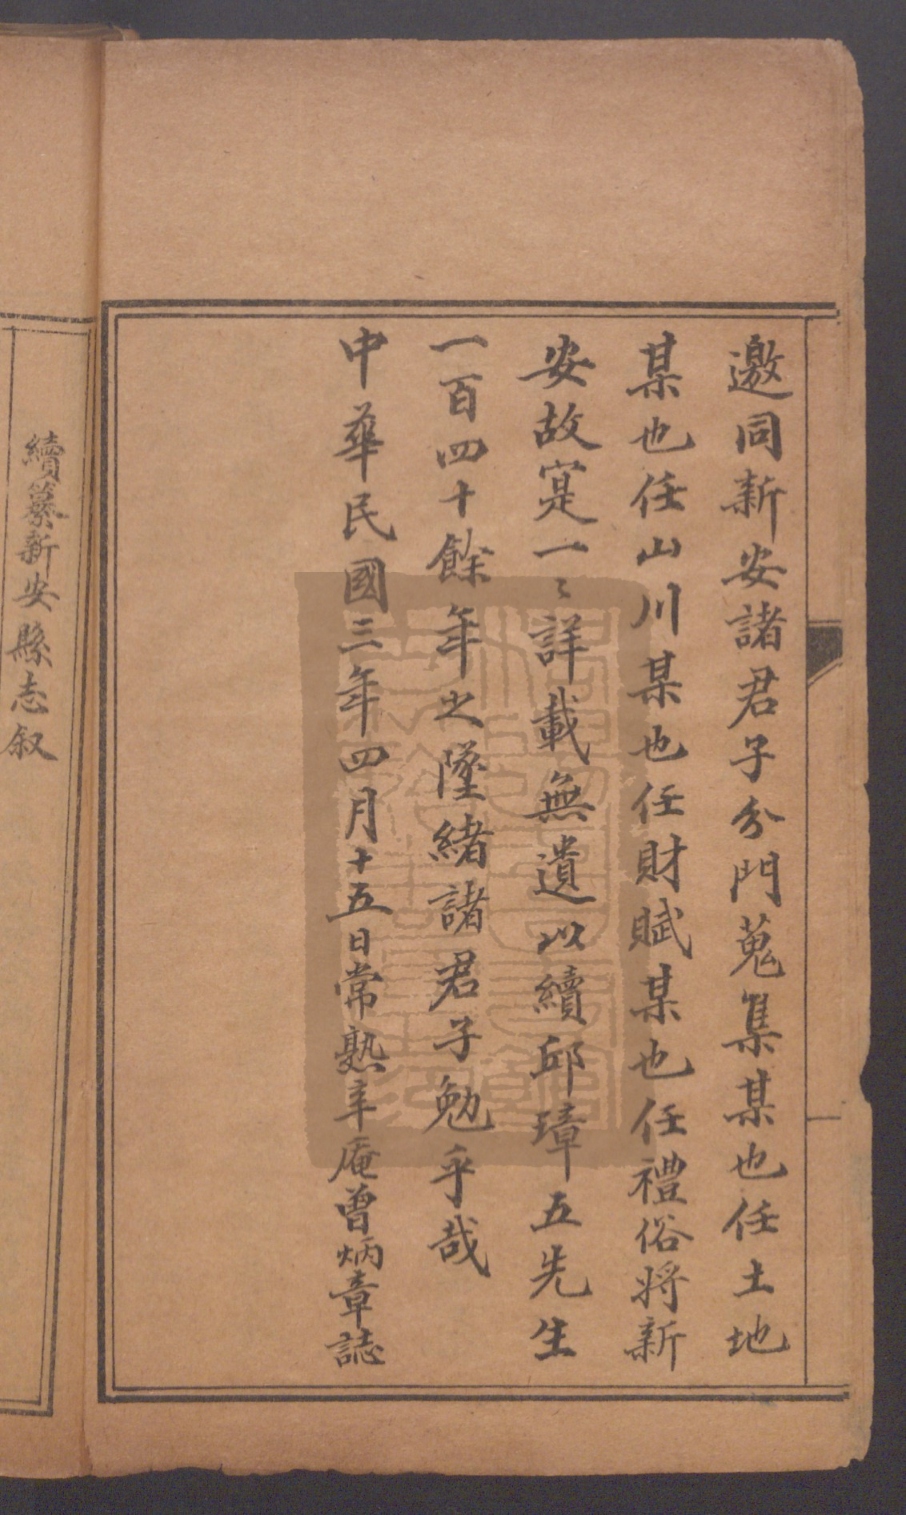 邀同新安諸君子分門蒐集某也任土地
某也任山川某也任財賦某也任禮俗將新
安故寔一〻詳載無遺以續邱璋五先生
一百四十餘年之墜緒諸君子勉乎哉
中華民國三年四月十五日常熟辛庵曾炳章誌
續纂新安縣志叙